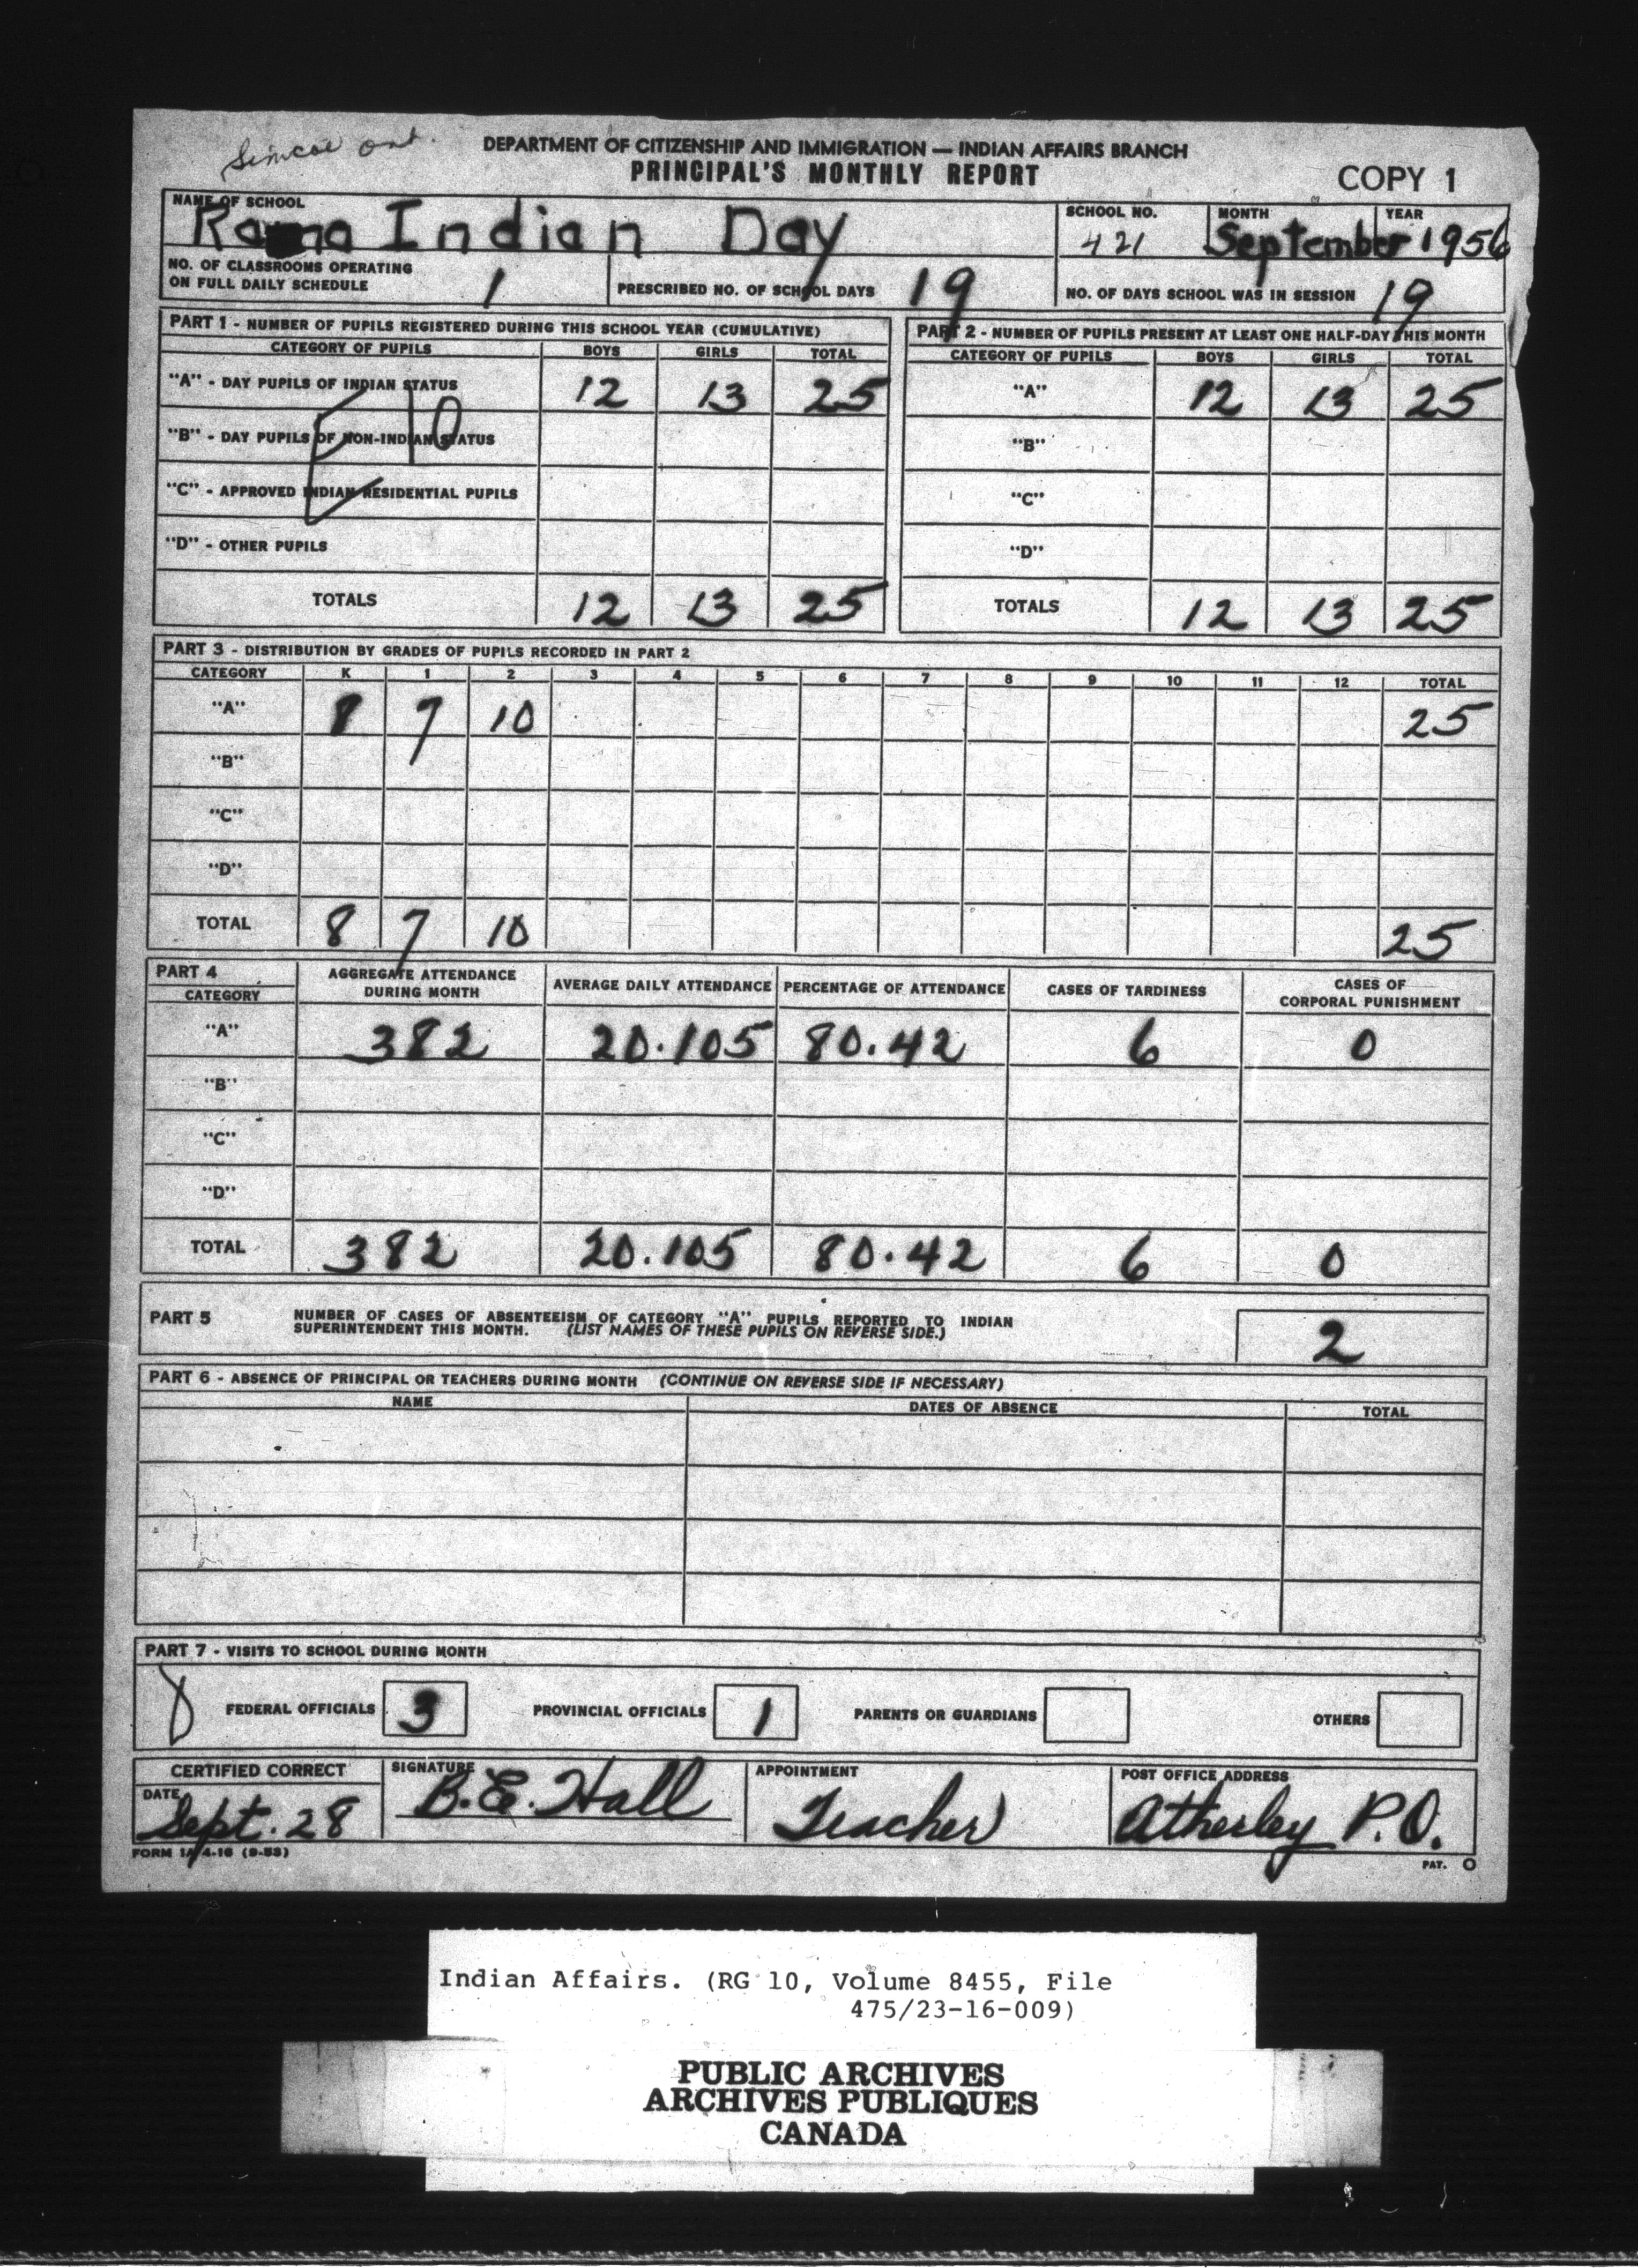 Simcoe Ont.
DEPARTMENT OF CITIZENSHIP AND IMMIGRATION — INDIAN AFFAIRS BRANCH
PRINCIPAL'S MONTHLY REPORT
COPY 1
NAME OF SCHOOL
Rama Indian Day
SCHOOL NO.
421
MONTH
September
YEAR
1956
NO. OF CLASSROOMS OPERATING
ON FULL DAILY SCHEDULE
1
PRESCRIBED NO. OF SCHOOL DAYS 19
NO. OF DAYS SCHOOL WAS IN SESSION 19
PART 1 - NUMBER OF PUPILS REGISTERED DURING THIS SCHOOL YEAR (CUMULATIVE)
CATEGORY OF PUPILS BOYS GIRLS TOTAL
"A" - DAY PUPILS OF INDIAN STATUS 12 13 25
"B" - DAY PUPILS OF NON-INDIAN STATUS
10
"C" - APPROVED INDIAN RESIDENTIAL PUPILS
"D" - OTHER PUPILS
TOTALS 12 13 25
PART 2 - NUMBER OF PUPILS PRESENT AT LEAST ONE HALF-DAY THIS MONTH
CATEGORY OF PUPILS BOYS GIRLS TOTAL
"A" 12 13 25
"B"
"C"
"D"
TOTALS 12 13 25
PART 3 - DISTRIBUTION BY GRADES OF PUPILS RECORDED IN PART 2
CATEGORY K 1 2 3 4 5 6 7 8 9 10 11 12 TOTAL
"A" 8 7 10 25
"B"
"C"
"D"
TOTAL 8 7 10 25
PART 4
CATEGORY
AGGREGATE ATTENDANCE
DURING MONTH
AVERAGE DAILY ATTENDANCE
PERCENTAGE OF ATTENDANCE
CASES OF TARDINESS
CASES OF
CORPORAL PUNISHMENT
"A" 382 20.105 80.42 6 0
"B"
"C"
"D"
TOTAL 382 20.105 80.42 6 0
PART 5
NUMBER OF CASES OF ABSENTEEISM OF CATEGORY "A" PUPILS REPORTED TO INDIAN
SUPERINTENDENT THIS MONTH. (LIST NAMES OF THESE PUPILS ON REVERSE SIDE.)
2
PART 6 - ABSENCE OF PRINCIPAL OR TEACHERS DURING MONTH (CONTINUE ON REVERSE SIDE IF NECESSARY)
NAME DATES OF ABSENCE TOTAL
PART 7 - VISITS TO SCHOOL DURING MONTH
FEDERAL OFFICIALS 3 PROVINCIAL OFFICIALS 1 PARENTS OR GUARDIANS OTHERS
CERTIFIED CORRECT
DATE
Sept. 28
SIGNATURE
B.E. Hall
APPOINTMENT
Teacher
POST OFFICE ADDRESS
Atherley P.O.
FORM 1A 4-16 (9-53)
PAT. O
Indian Affairs. (RG 10, Volume 8455, File
475/23-16-009)
PUBLIC ARCHIVES
ARCHIVES PUBLIQUES
CANADA